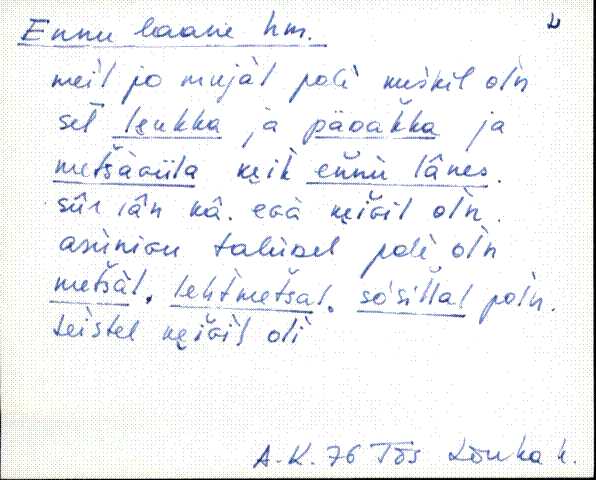 Ennu laane hm.
meil jo mujàl polè muškil oln
set lęukka ja päoàkka ja
metšàoùla kęik ennù lânes.
sûr lân kâ. eoà kęiǒil oln.
asùniǒu talùdel polè oln
metšàl, lehtmetšal, sósillal poln.
teistel kęiǒil oli
A.-K. 76 Tõs Lõuka k.